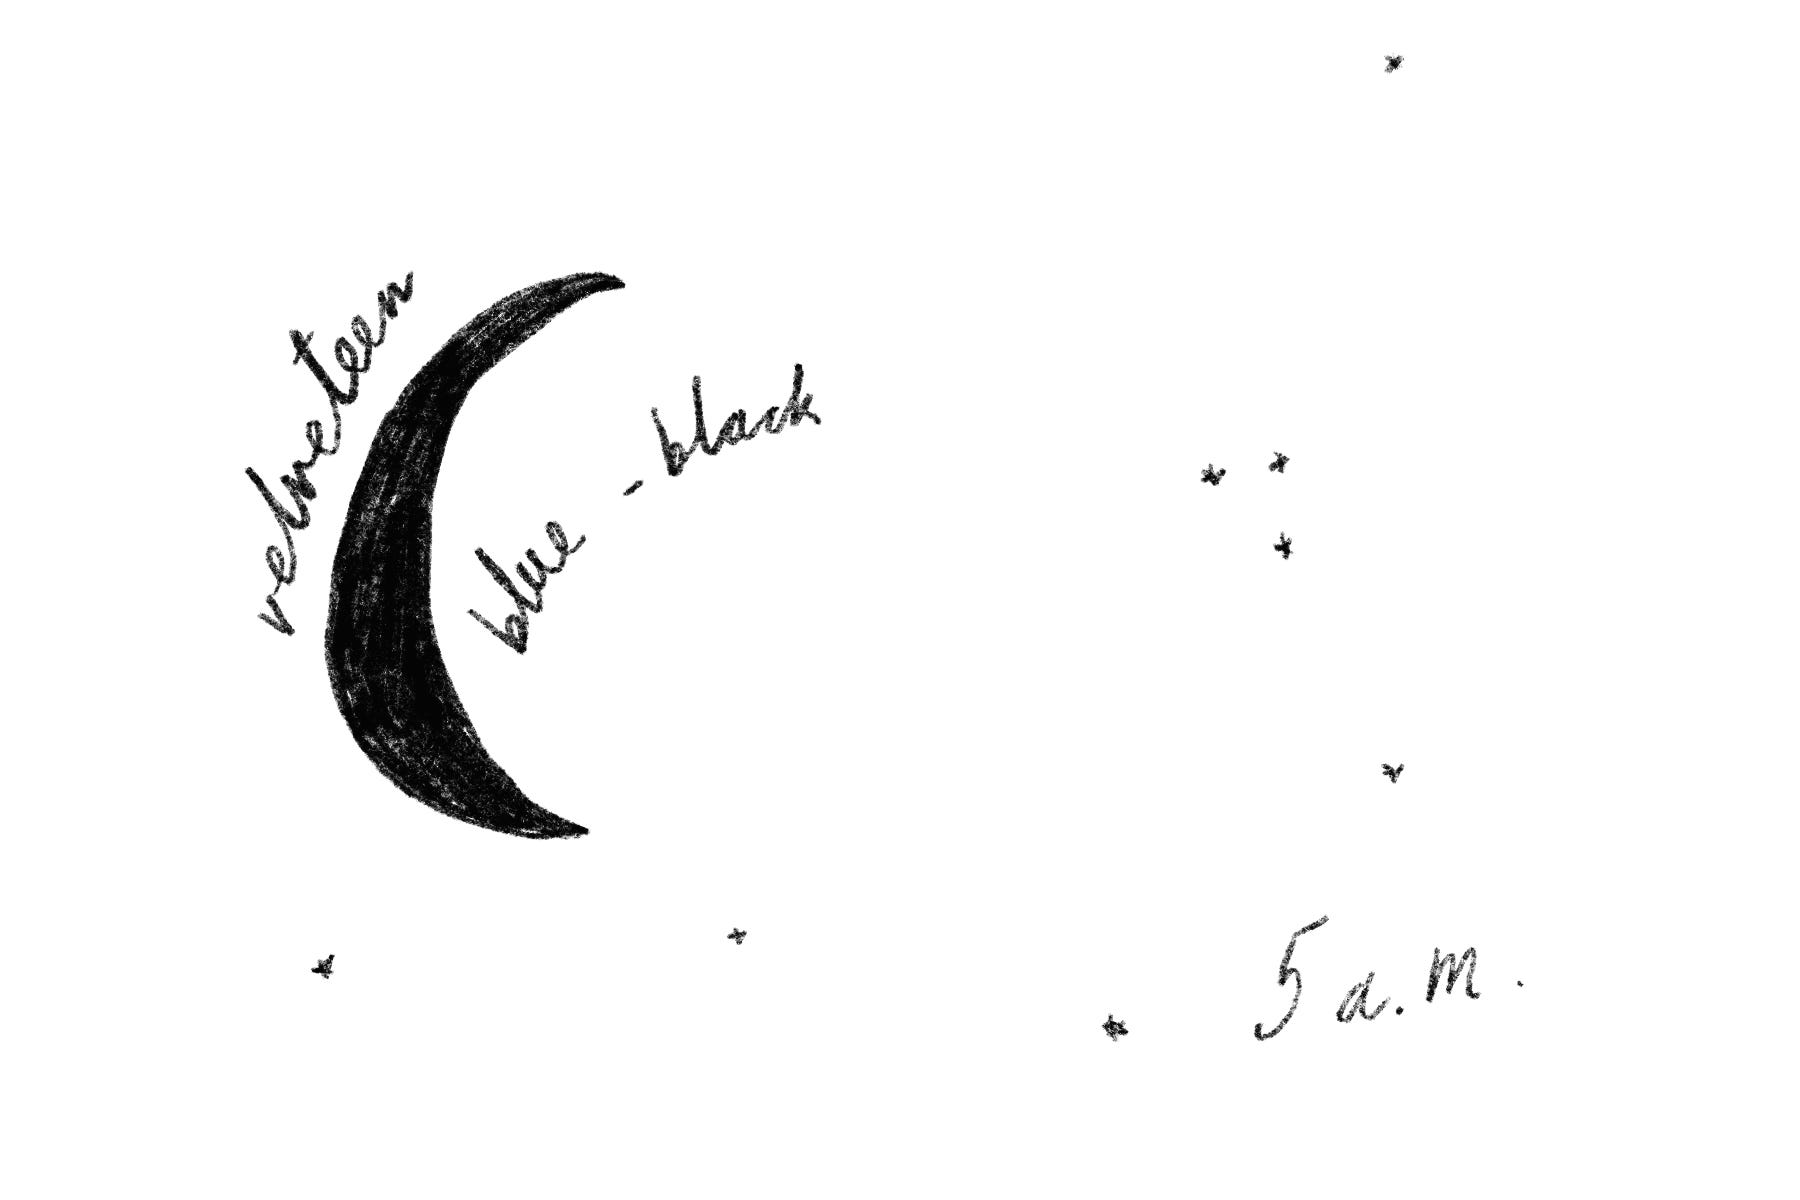 velveteen
blue - black
5 a.m.